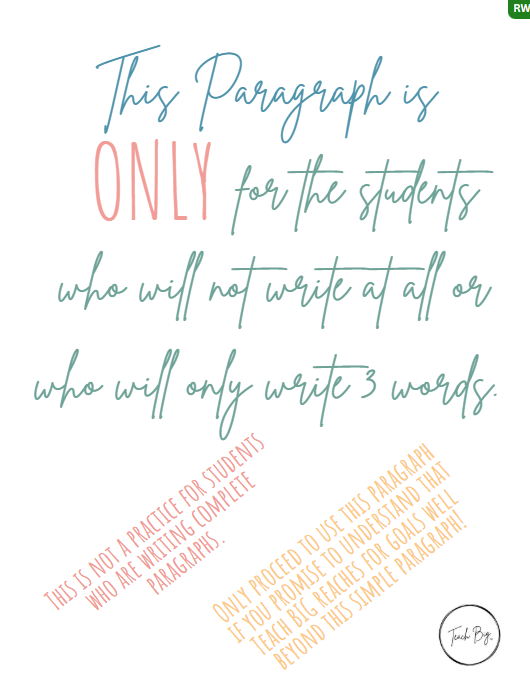 RW
This Paragraph is
ONLY for the students
who will not write at all or
who will only write 3 words.
THIS IS NOT A PRACTICE FOR STUDENTS
WHO ARE WRITING COMPLETE
PARAGRAPHS.
ONLY PROCEED TO USE THIS PARAGRAPH
IF YOU PROMISE TO UNDERSTAND THAT
TEACH BIG REACHES FOR GOALS WELL
BEYOND THIS SIMPLE PARAGRAPH!
Teach Big